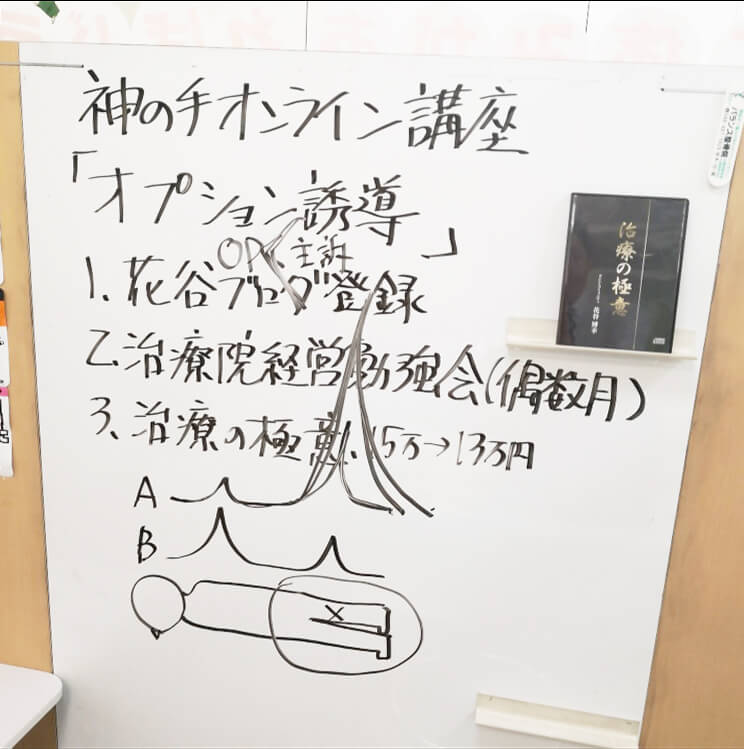 神の手オンライン講座
「オプション誘導」
OP、主訴
1、花谷ブログ登録
2、治療院経営勉強会(偶数月)
3、治療の極意、15万→13万円
A
B
×
治療の極意
花谷博幸